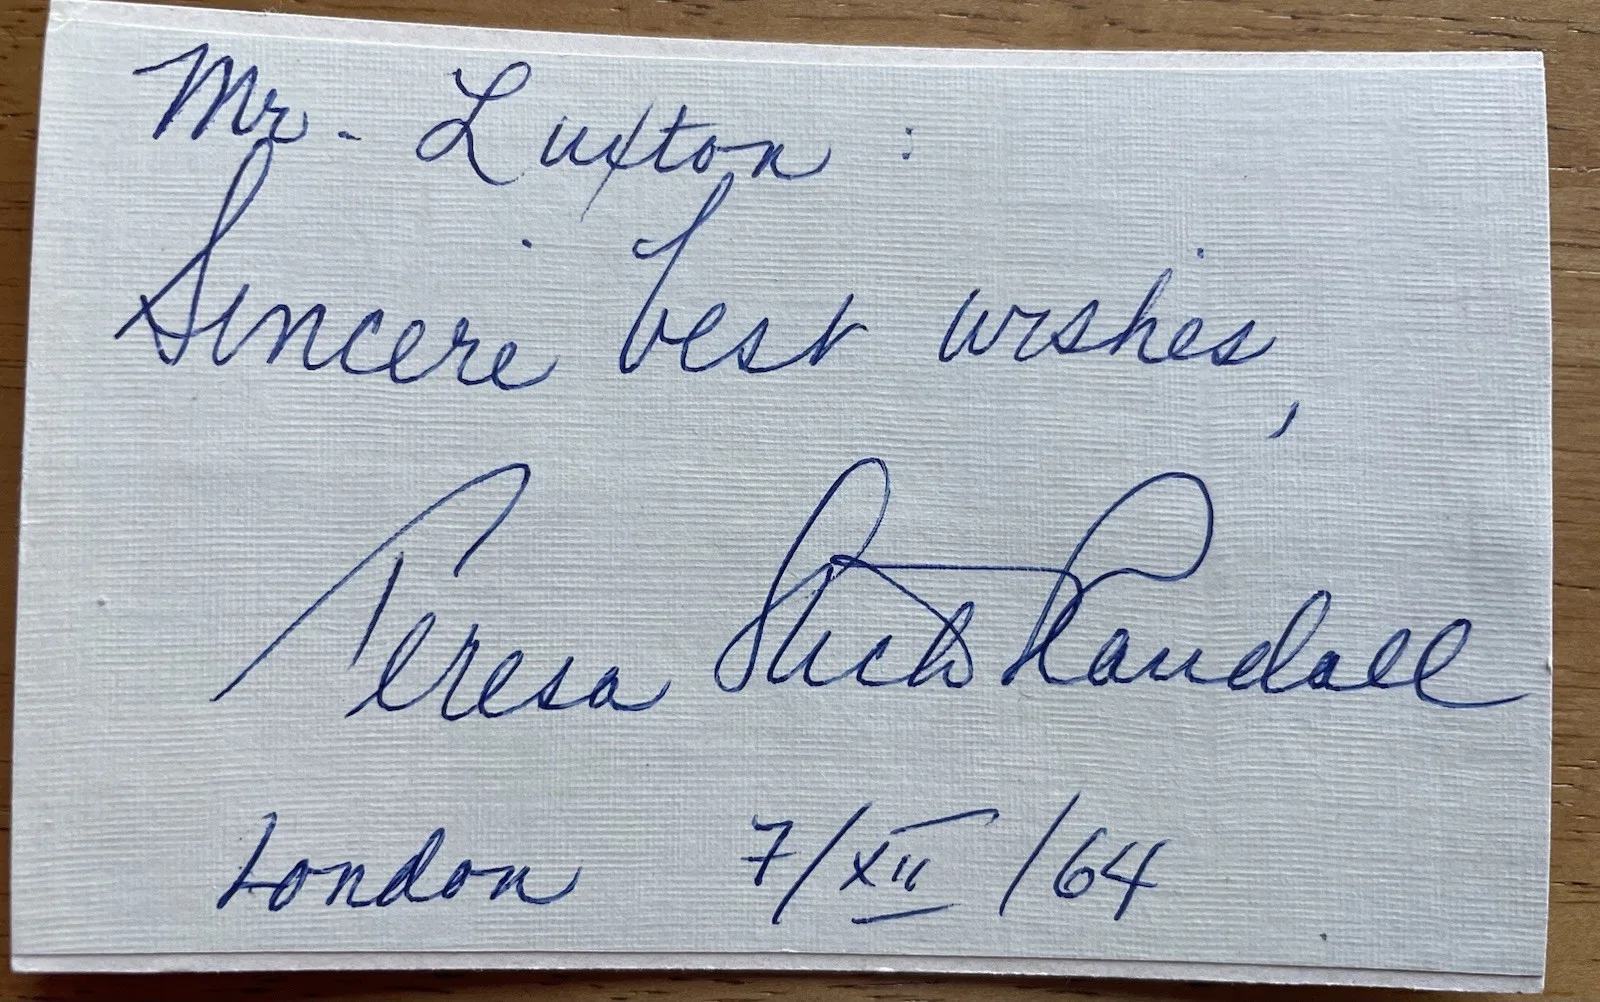 Mr. Luxton:
Sincere best wishes,
Teresa Stich Randall
London 7/XII/64